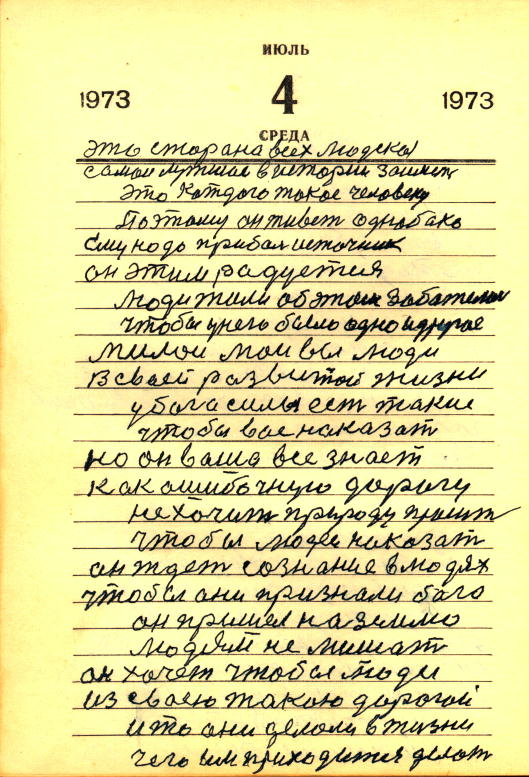 ИЮЛЬ
1973 4 1973
СРЕДА
это старана всех людской
самои лутшае в истории
это каждого такое человеку
Поэтому он живет однобако
ему надо источник
он этим радуется
люди жили об этом
чтобы у него было одно и другое
милои мои вы люди
в своей развитой жизни
у бога силы ест такие
чтобы вас наказат
но он ваша все знает
как ошибочную дорогу
не хочит природу
чтобы людей наказат
он ждет сознание в людях
чтобы они признали бога
он пришел на землю
людям не мишат
он хочет чтобы люди
из своею такою дорогой
и то они делали в жизни
чего им приходится делат